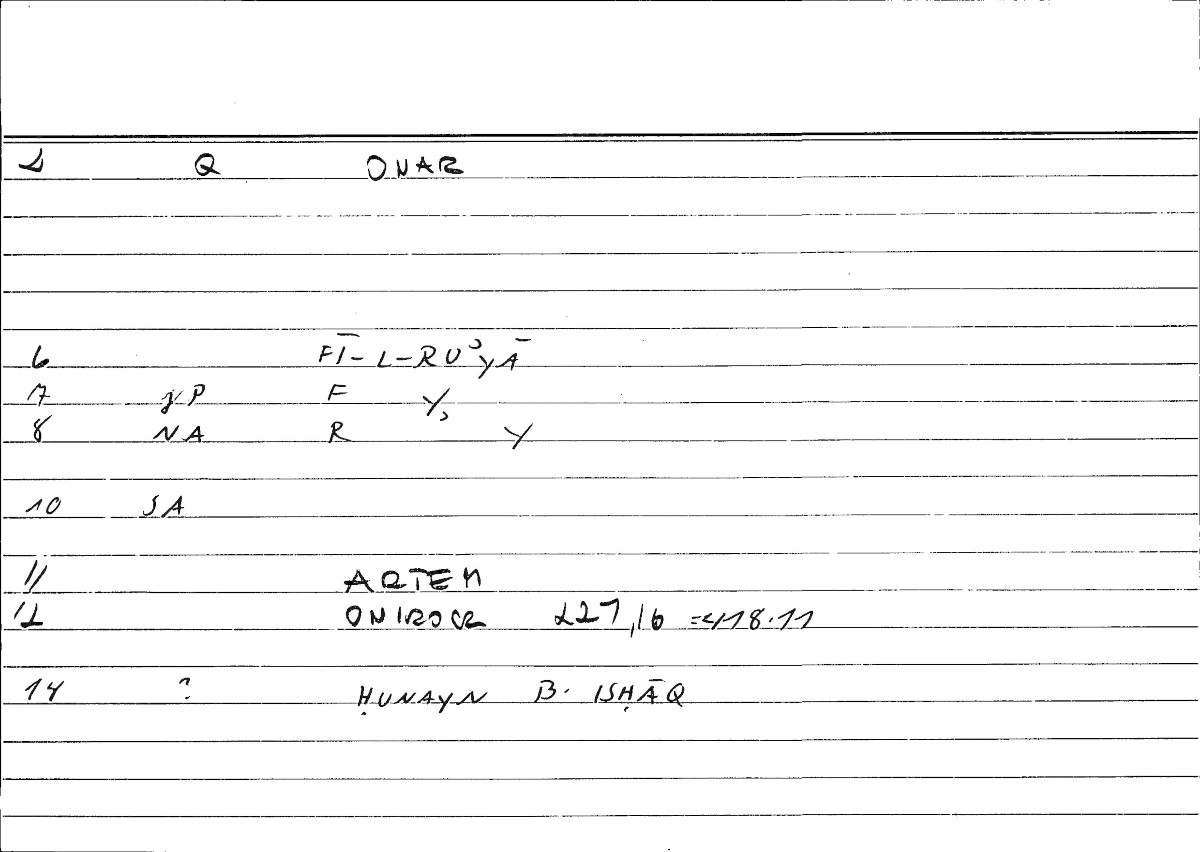 2 Q ONAR
6 FĪ-L-RUʾYĀ
7 γP F Y,
8 NA R Y
10 SA
11 ARTEM
12 ONIROCR 227,16 =418.11
14 ? ḤUNAYN B. ISḤĀQ